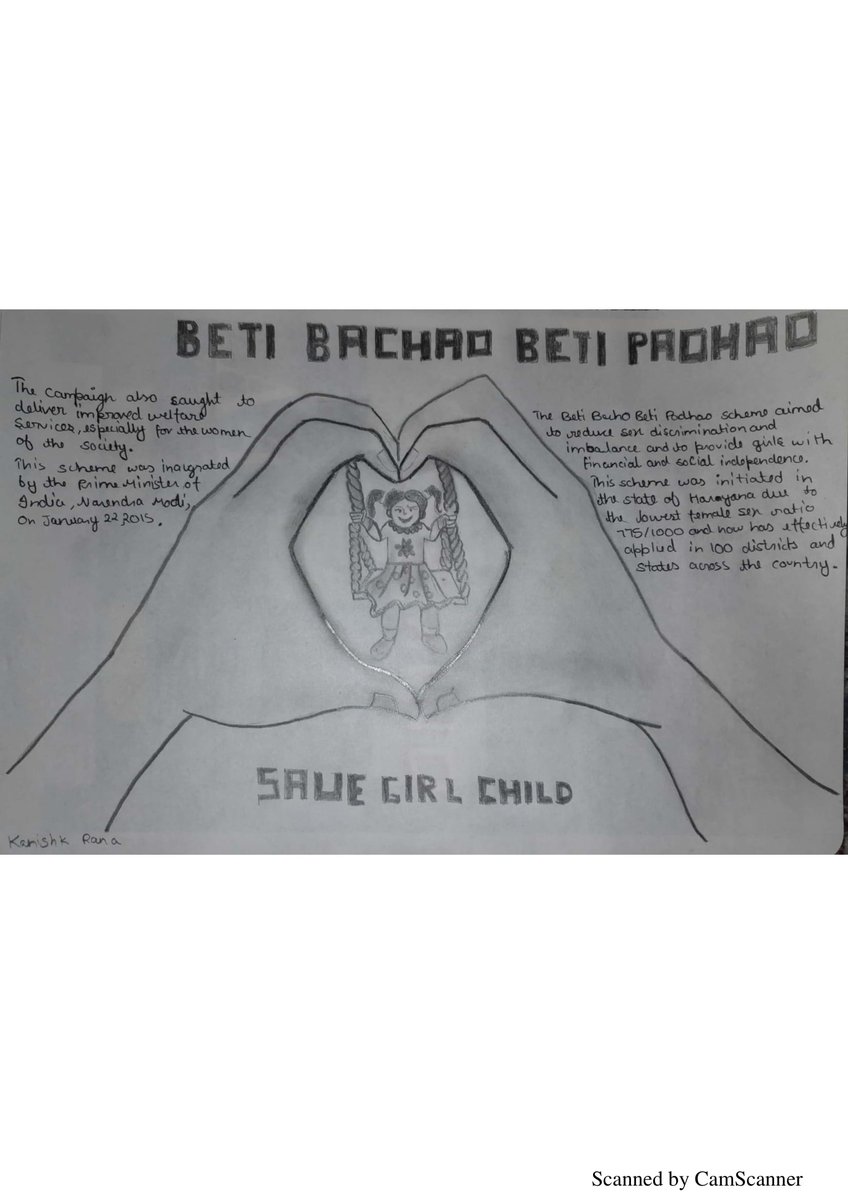 BETI BACHAO BETI PADHAO
The campaign also saught to
deliver improved welfare
Services, especially for the women
of the society.
This scheme was inaigrated
by the Prime Minister of
India, Narendra Modi,
On January 22 2015.
The Beti Bacho Beti Padhao scheme aimed
to reduce sex discrimination and
imbalance and to provide girls with
financial and social independence.
This scheme was initiated in
the state of Harayana due to
the lowest female sex ratio
775/1000 and now has effectively
applied in 100 districts and
states across the country.
SAVE GIRL CHILD
Kanishk Rana
Scanned by CamScanner